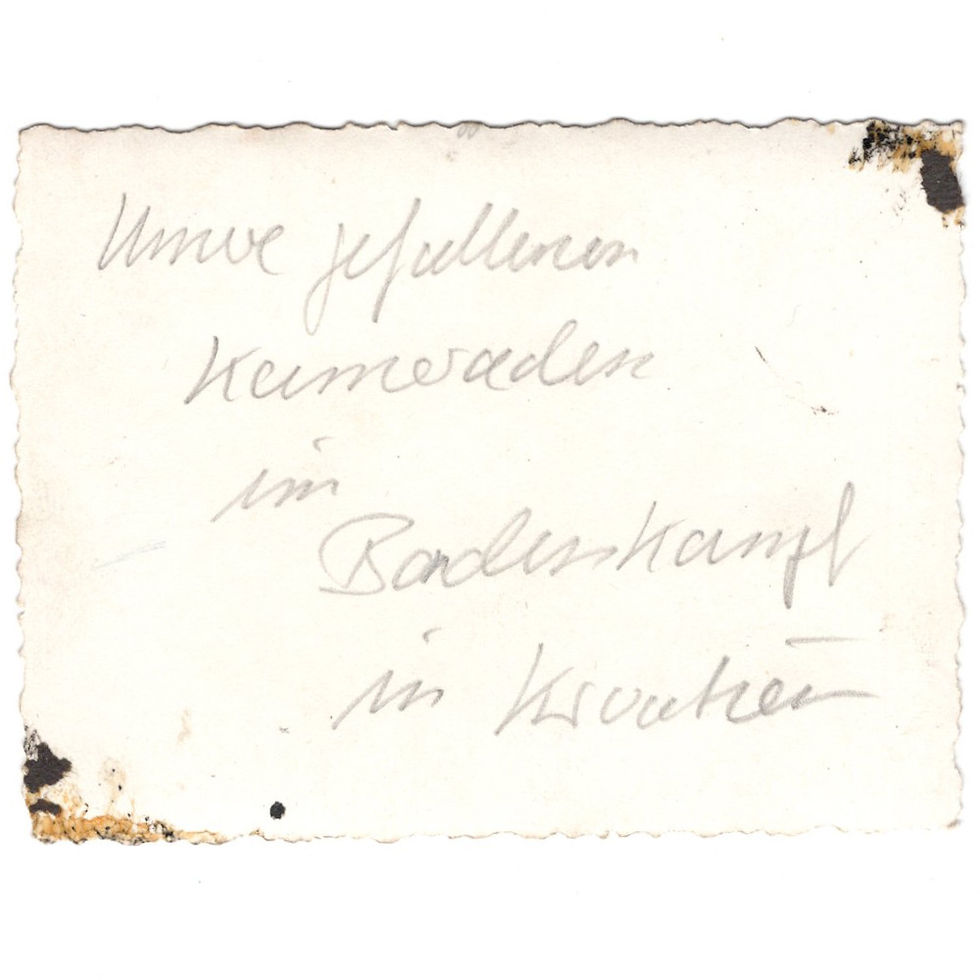 Unsere gefallenen
Kameraden
im
Bandenkampf
in Kroatien